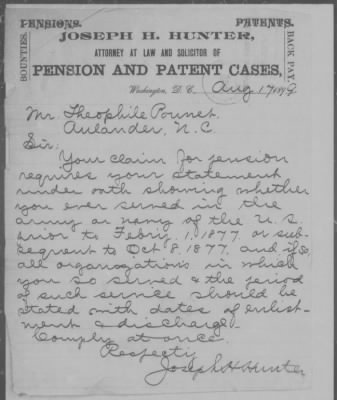 PENSIONS.
PATENTS.
BOUNTIES.
BACK PAY.
JOSEPH H. HUNTER,
ATTORNEY AT LAW AND SOLICITOR OF
PENSION AND PATENT CASES,
Washington, D. C., Aug 17
Mr. Theophile
Aulander, N.C.
Sir:
Your claim for pension
requires your statement
under oath showing whether
you ever served in the
army or navy of the U. S.
prior to Febry 1, 1877 or sub-
sequent to Oct 8, 1877, and if so,
all organizations in which
you so served & the period
of such service should be
stated with dates of enlist-
ment & discharge.
Comply at once.
Respectly
Joseph H Hunter